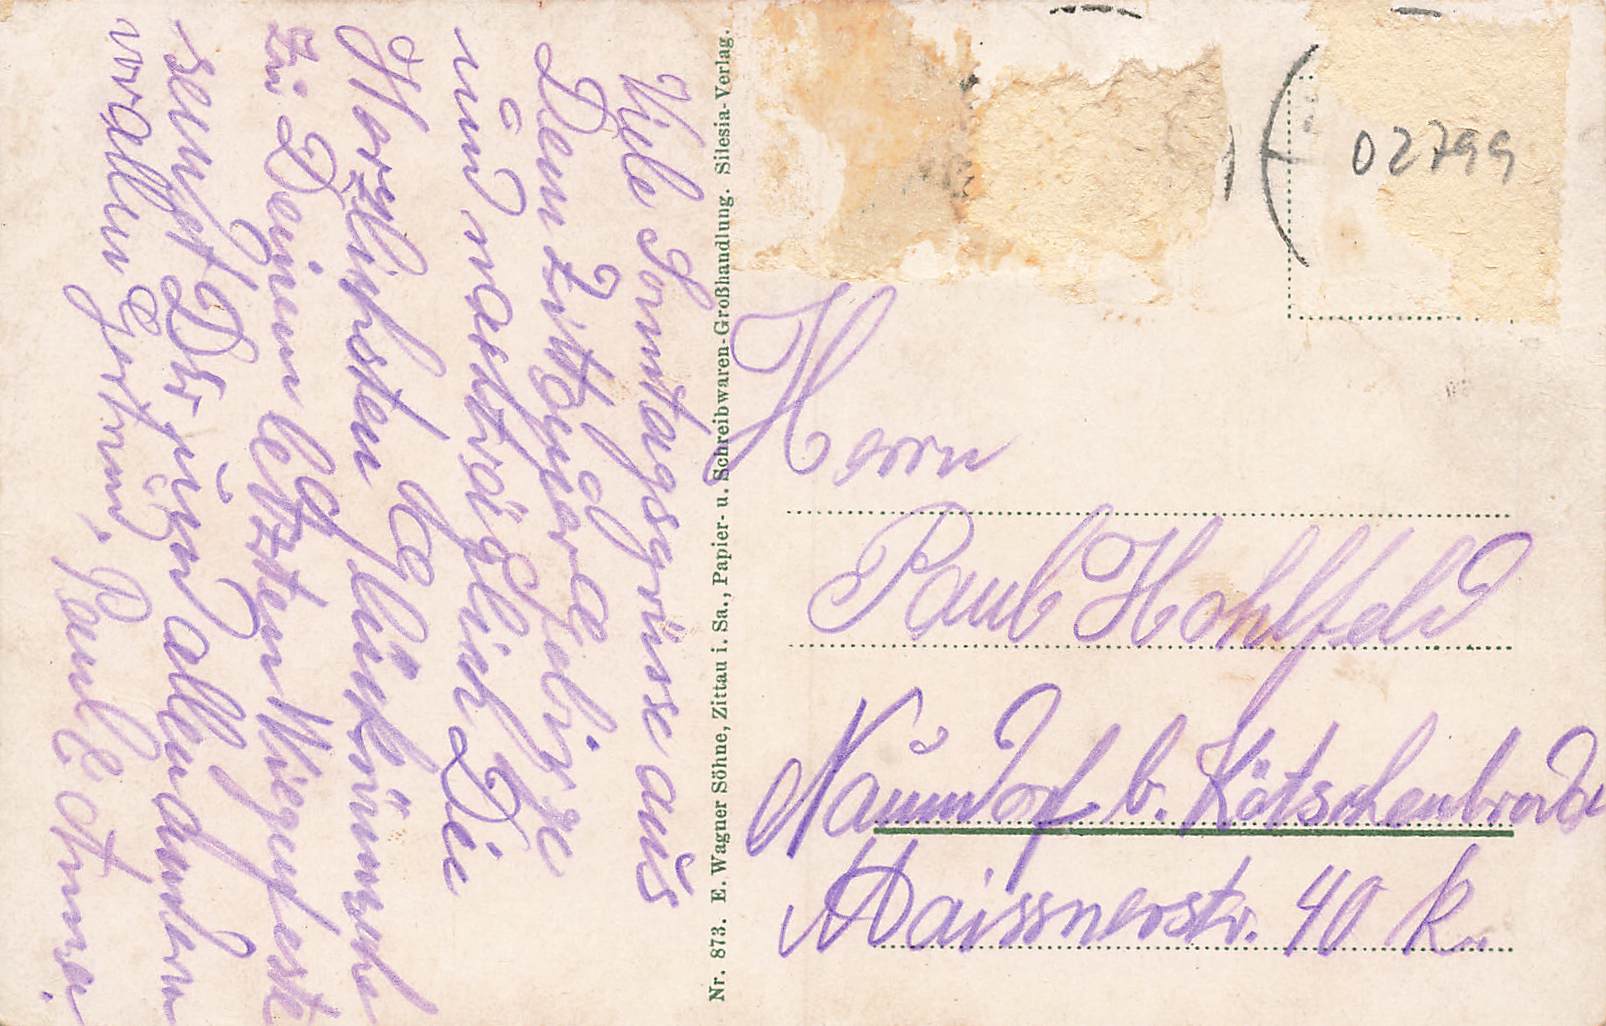 Viele Sonntagsgrüsse aus
Dem Zittauergebirge
und nachträglich Die
Herzlichsten Beglückwünsche
zu Deinem letzten Wiegenfeste
senden Dir
Paul E
Nr. 873. E. Wagner Söhne, Zittau i. Sa., Papier- u. Schreibwaren-Großhandlung. Silesia-Verlag.
02799
Herrn
Paul Hohlfeld
Naundorf b. Kötschenbroda
Maissnerstr. 40 k.